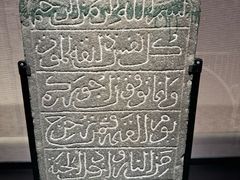 بسم الله الرحمن الرحيم
كل نفس ذائقة الموت
وانما توفون اجوركم
يوم القيمة فمن زحزح
عن النار وادخل الجنة